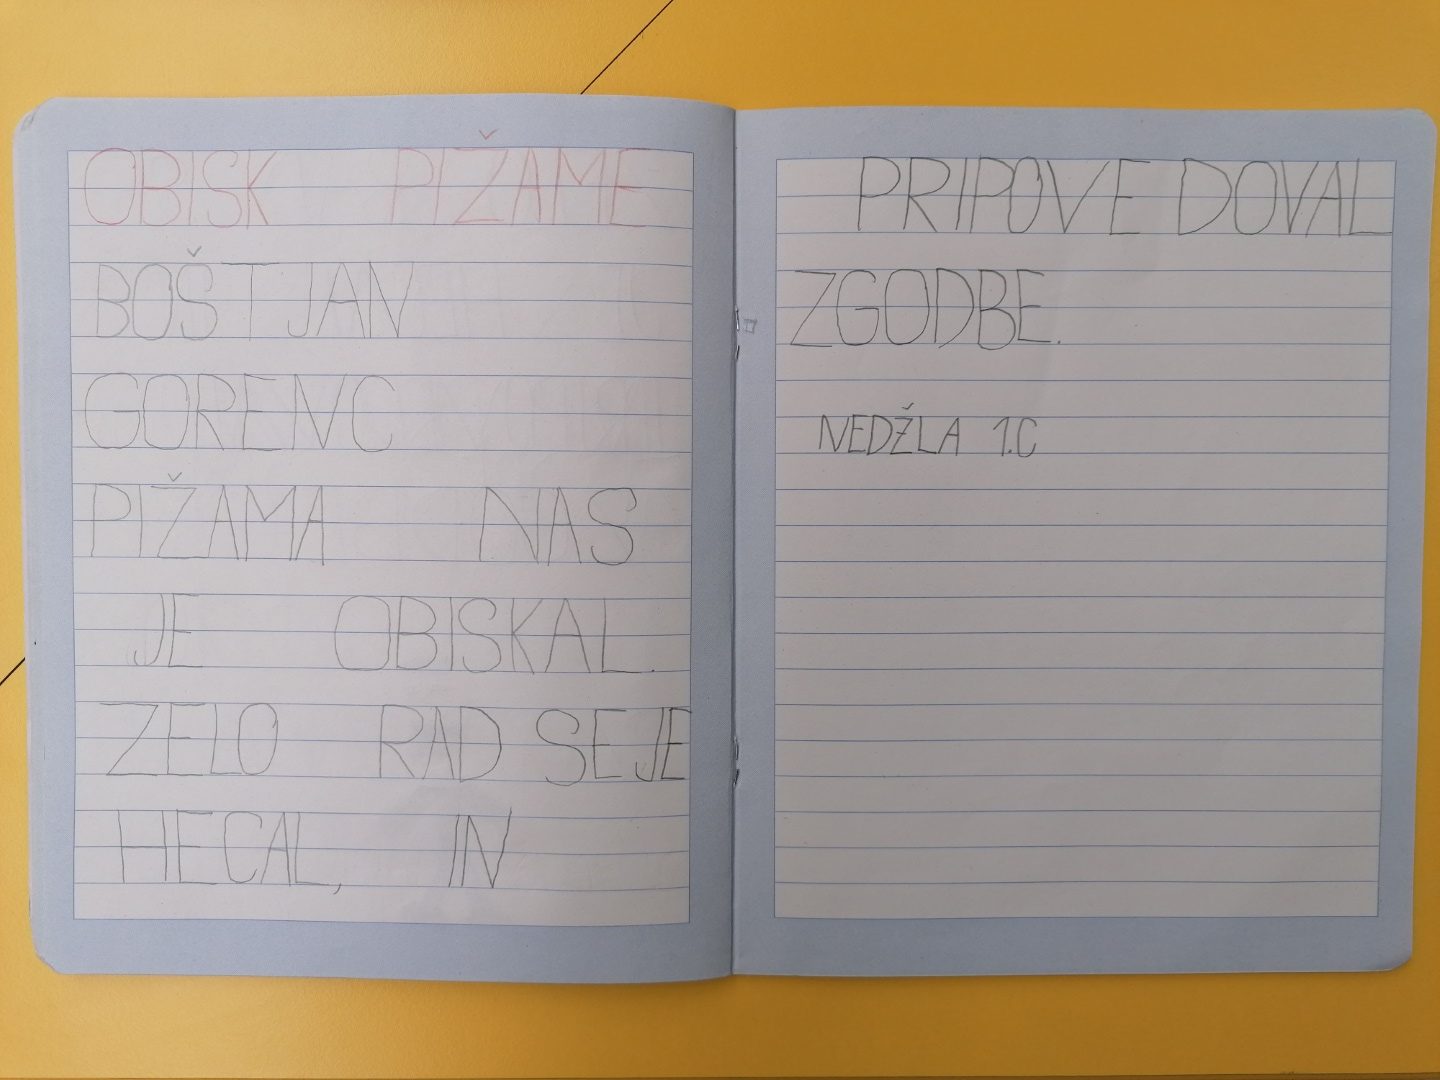 OBISK PIŽAME
BOŠTJAN
GORENC
PIŽAMA NAS
JE OBISKAL.
ZELO RAD SE JE
HECAL, IN
PRIPOVEDOVAL
ZGODBE.
NEDŽLA 1.C